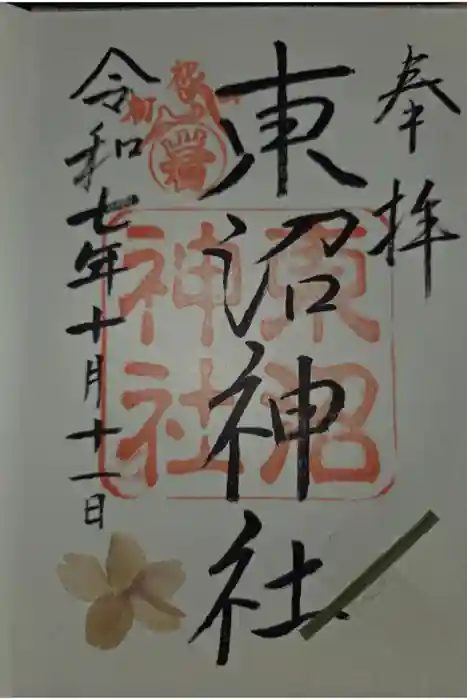 奉拝
東沼神社
東沼
神社
令和七年十月十一日